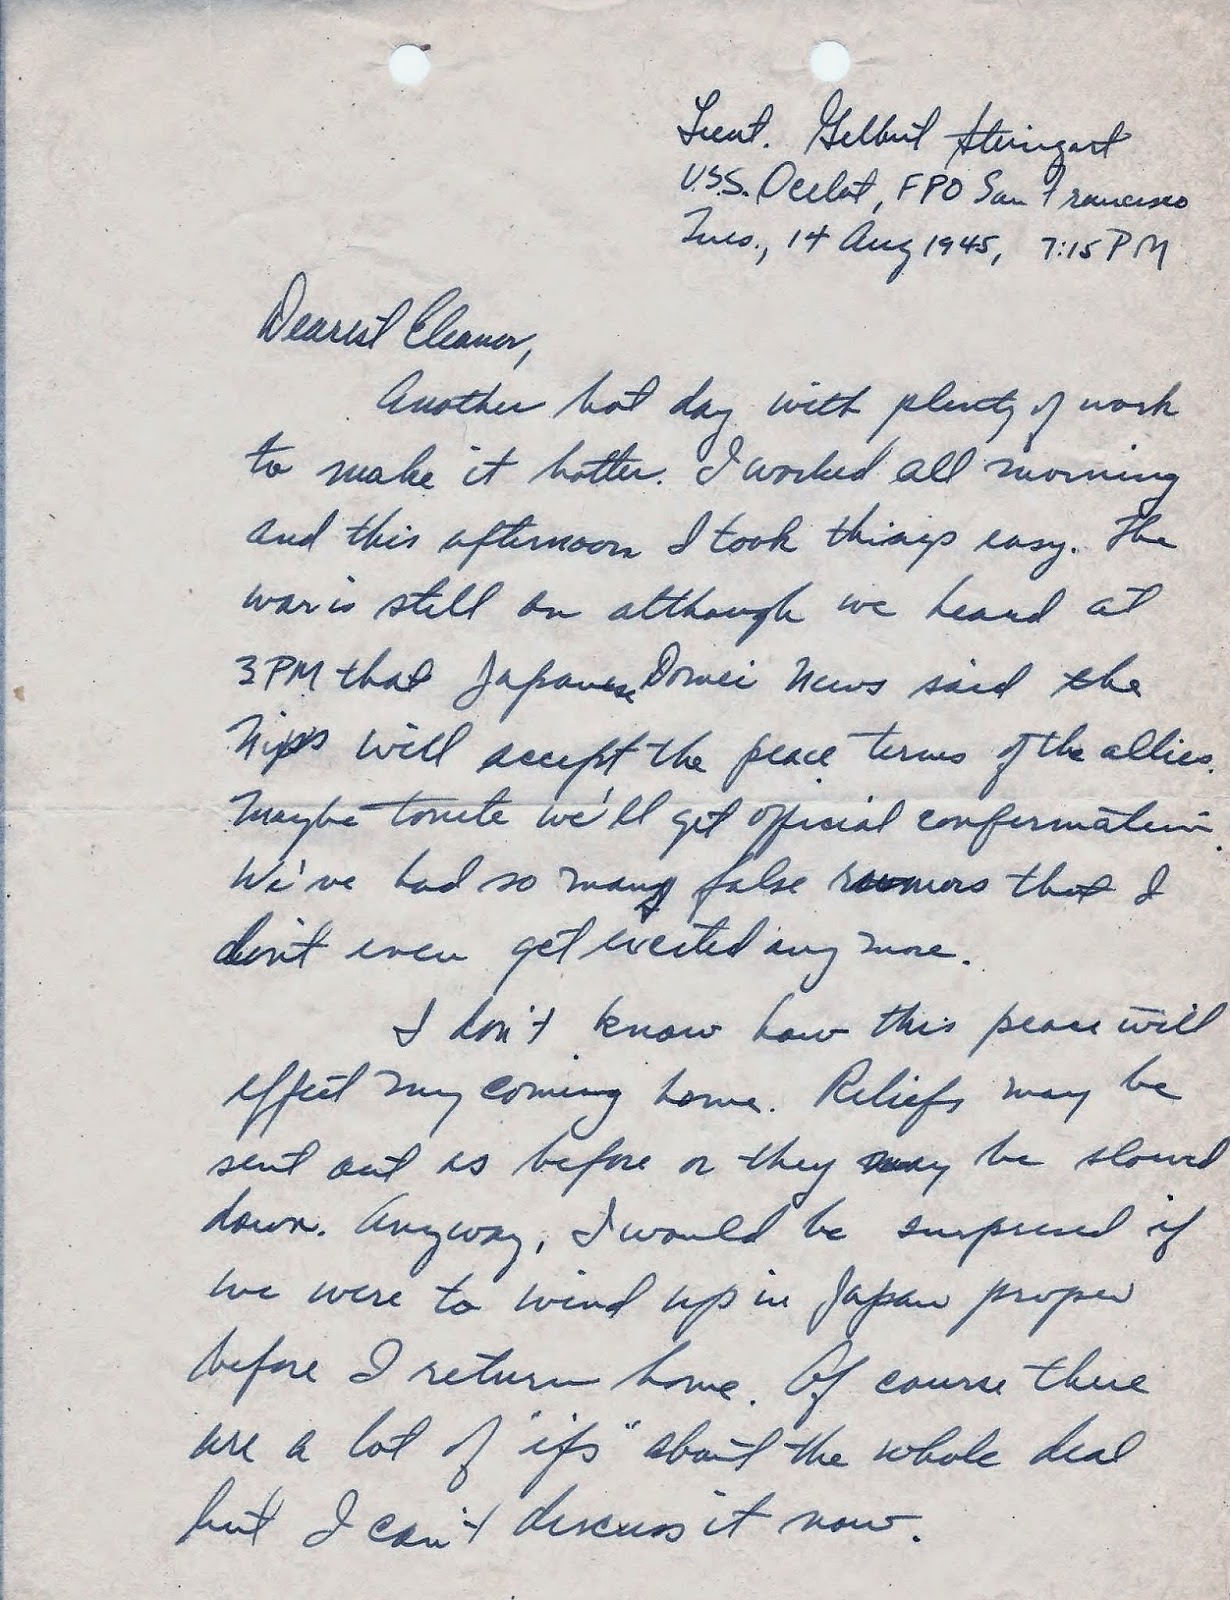 Lieut. Gilbert Steingart
U.S.S. Ocelot, FPO San Francisco
Tues., 14 Aug 1945, 7:15 PM
Dearest Eleanor,
Another hot day with plenty of work
to make it hotter. I worked all morning
and this afternoon I took things easy. The
war is still on although we heard at
3 PM that Japanese Domei News said the
Nips will accept the peace terms of the allies.
Maybe tonite we'll get official confirmation.
We've had so many false rumors that I
don't even get excited any more.
I don't know how this peace will
effect my coming home. Reliefs may be
sent out as before or they may be slowed
down. Anyway, I would be surprised if
we were to wind up in Japan proper
before I return home. Of course there
are a lot of "ifs" about the whole deal
but I can't discuss it now.